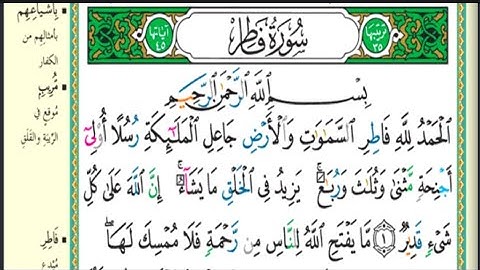 ترتيبها ٣٥
سُورَةُ فَاطِرٍ
آياتها ٤٥
بِسْمِ ٱللَّهِ ٱلرَّحْمَٰنِ ٱلرَّحِيمِ
ٱلْحَمْدُ لِلَّهِ فَاطِرِ ٱلسَّمَٰوَٰتِ وَٱلْأَرْضِ جَاعِلِ ٱلْمَلَٰٓئِكَةِ رُسُلًا أُو۟لِىٓ
أَجْنِحَةٍ مَّثْنَىٰ وَثُلَٰثَ وَرُبَٰعَ ۚ يَزِيدُ فِى ٱلْخَلْقِ مَا يَشَآءُ ۚ إِنَّ ٱللَّهَ عَلَىٰ كُلِّ
شَىْءٍ قَدِيرٌ ۝١ مَّا يَفْتَحِ ٱللَّهُ لِلنَّاسِ مِن رَّحْمَةٍ فَلَا مُمْسِكَ لَهَا ۖ
بِأَشْيَاعِهِم
بأمثالِهِم من
الكفار
مُّرِيبٍ
مُوقِعٍ في
الرِّيبَةِ والقَلَقِ
فَاطِرِ
مُبْدِعِ